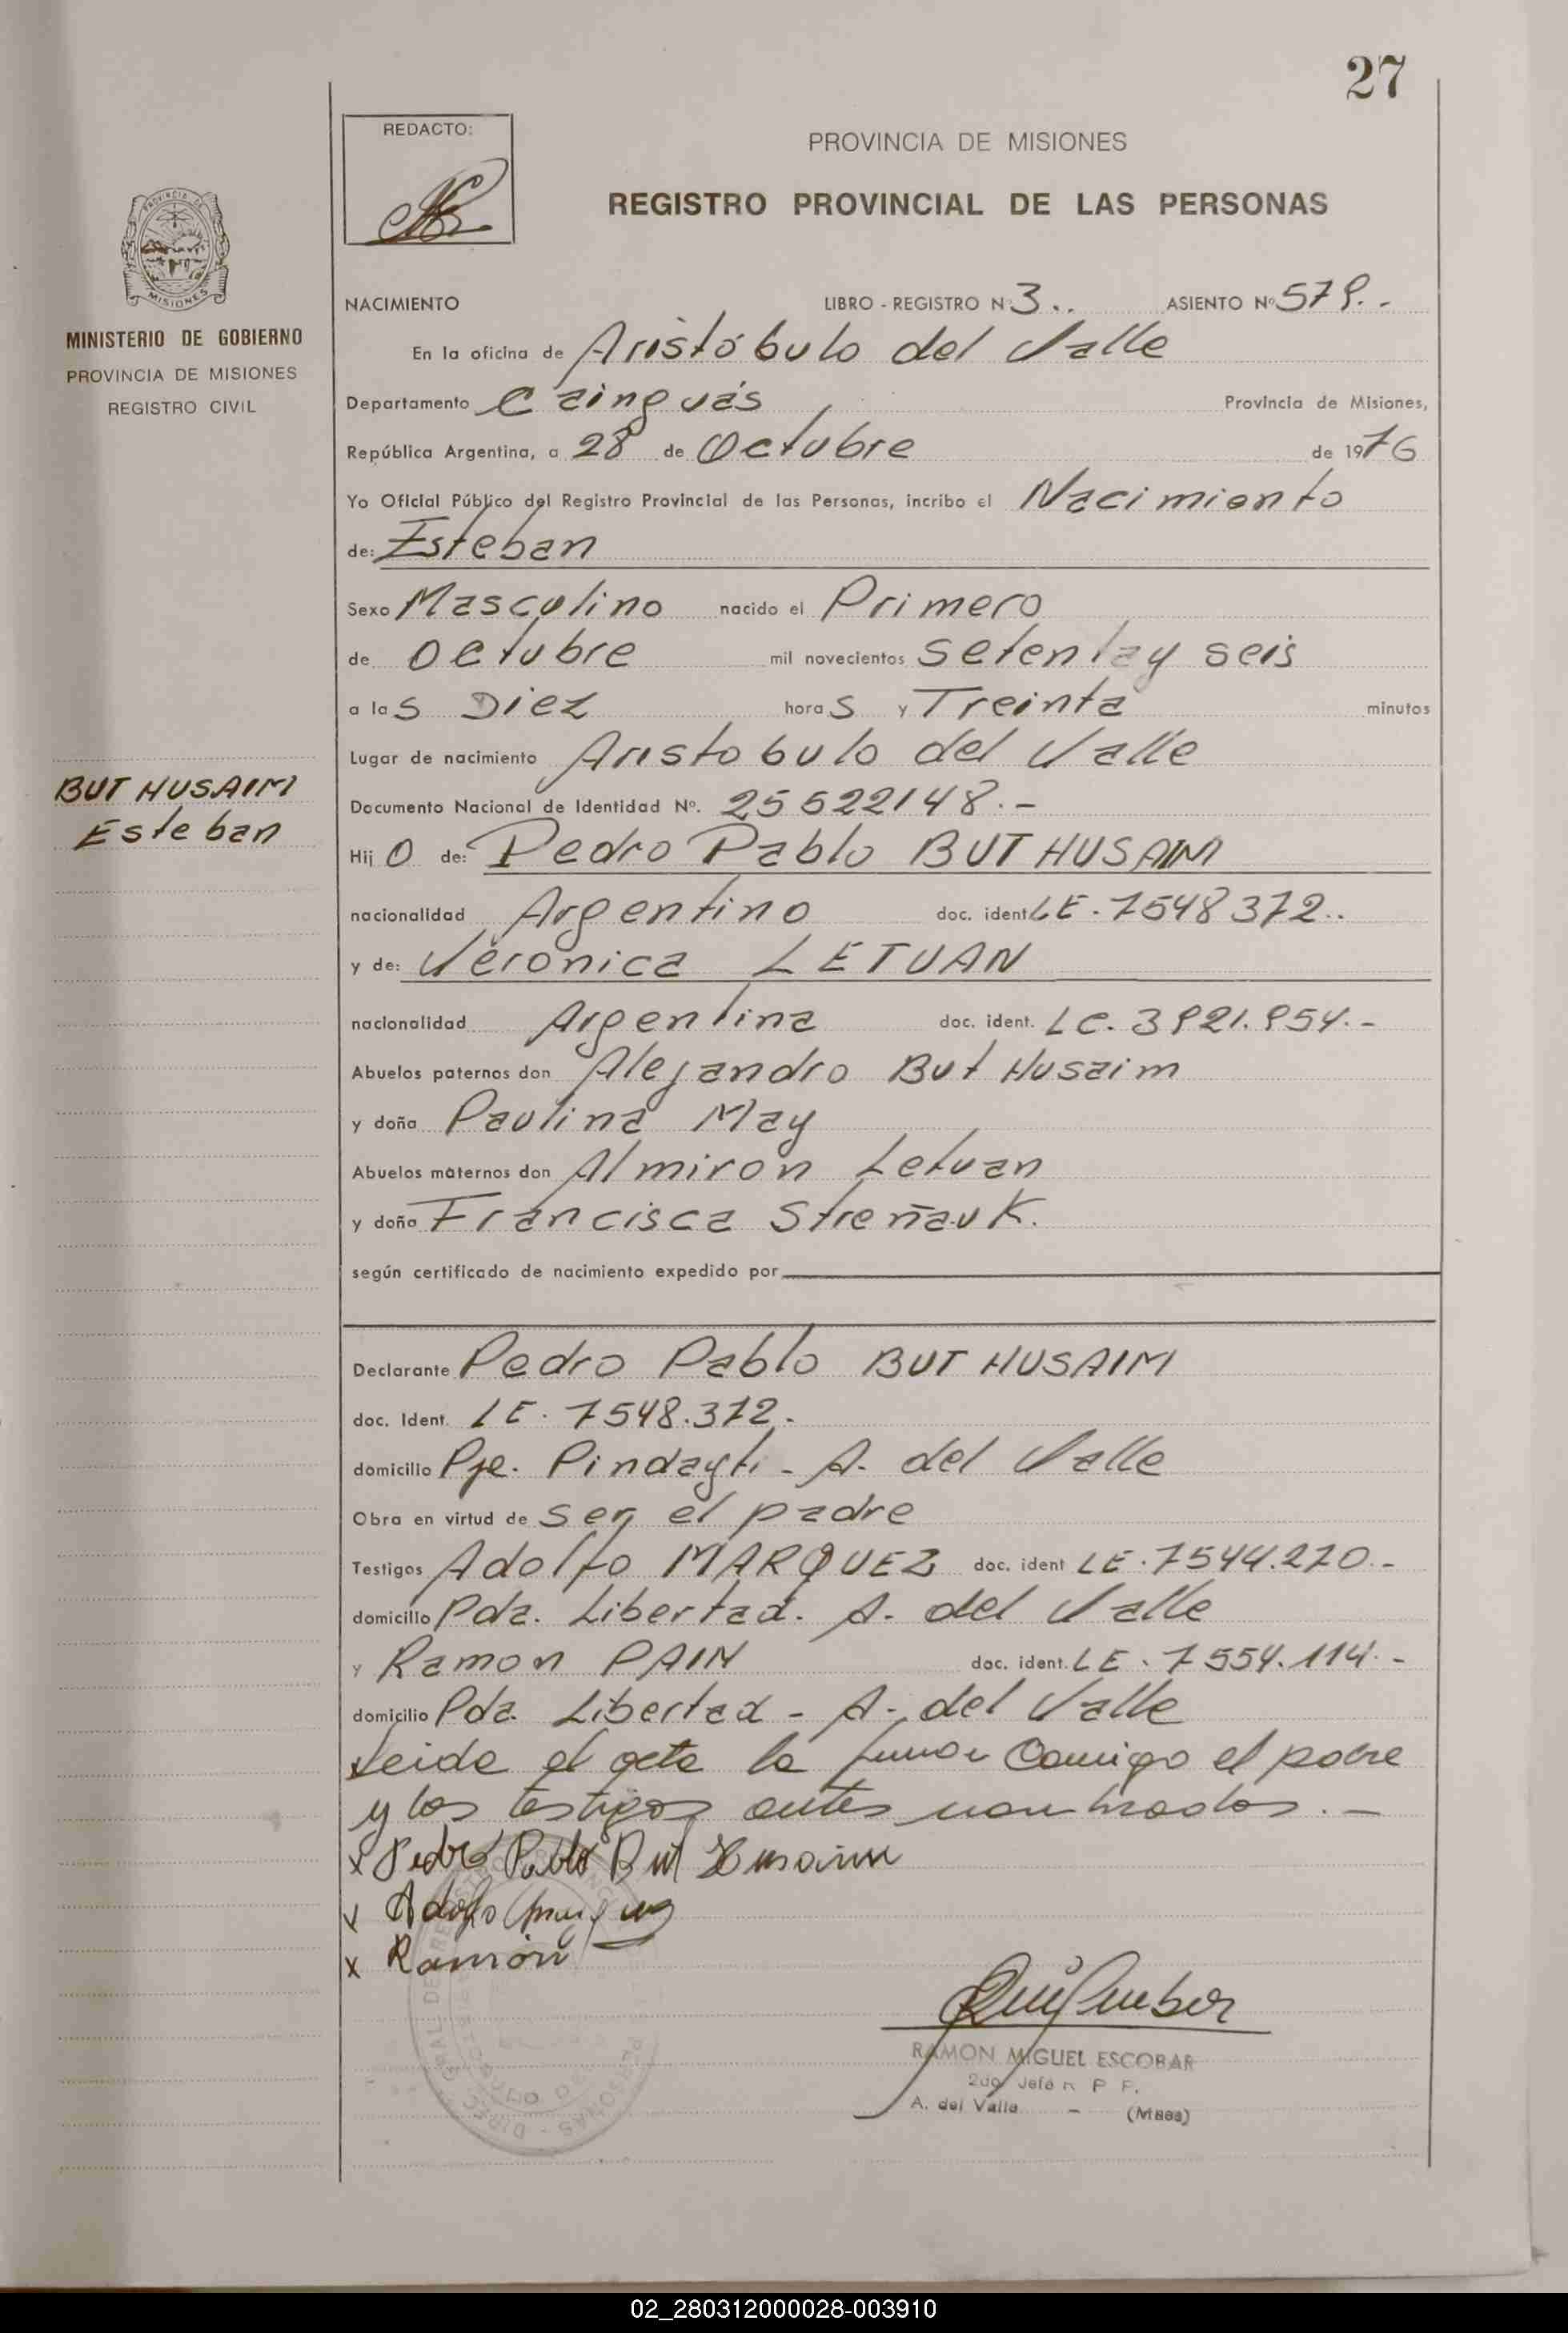 27
REDACTO:
PROVINCIA DE MISIONES
REGISTRO PROVINCIAL DE LAS PERSONAS
PROVINCIA DE
MISIONES
MINISTERIO DE GOBIERNO
PROVINCIA DE MISIONES
REGISTRO CIVIL
BUT HUSAIM
Esteban
NACIMIENTO LIBRO - REGISTRO N 3.. ASIENTO Nº 579.-
En la oficina de Aristóbulo del Valle
Departamento Cainguás Provincia de Misiones,
República Argentina, a 28 de Octubre de 1976
Yo Oficial Público del Registro Provincial de las Personas, incribo el Nacimiento
de: Esteban
Sexo Masculino nacido el Primero
de Octubre mil novecientos setentay seis
a las Diez horas y Treinta minutos
Lugar de nacimiento Aristobulo del Valle
Documento Nacional de Identidad Nº. 25622148.-
Hijo de: Pedro Pablo BUT HUSAIM
nacionalidad Argentino doc. ident LE-7548372..
y de: Verónica LETUAN
nacionalidad Argentina doc. ident. LC. 3921.954.-
Abuelos paternos don Alejandro But Husaim
y doña Paulina May
Abuelos maternos don Almiron Letuan
y doña Francisca Streñauk.
según certificado de nacimiento expedido por
Declarante Pedro Pablo BUT HUSAIM
doc. Ident. LE. 7548.372.
domicilio Pje. Pindayti - A. del Valle
Obra en virtud de ser el padre
Testigos Adolfo MARQUEZ doc. ident LE.7544.270.-
domicilio Pda. Libertad. A. del Valle
y Ramon PAIN doc. ident. LE. 7554.114.-
domicilio Pda. Libertad - A. del Valle
Leida el acta la firman Comigo el padre
y los testigos antes nombrados.-
x Pedro Pablo But Husaim
x Adolfo Marquez
x Ramón
RAMON MIGUEL ESCOBAR
2do Jefe R P P.
A. del Valle - (Mnes)
02_280312000028-003910